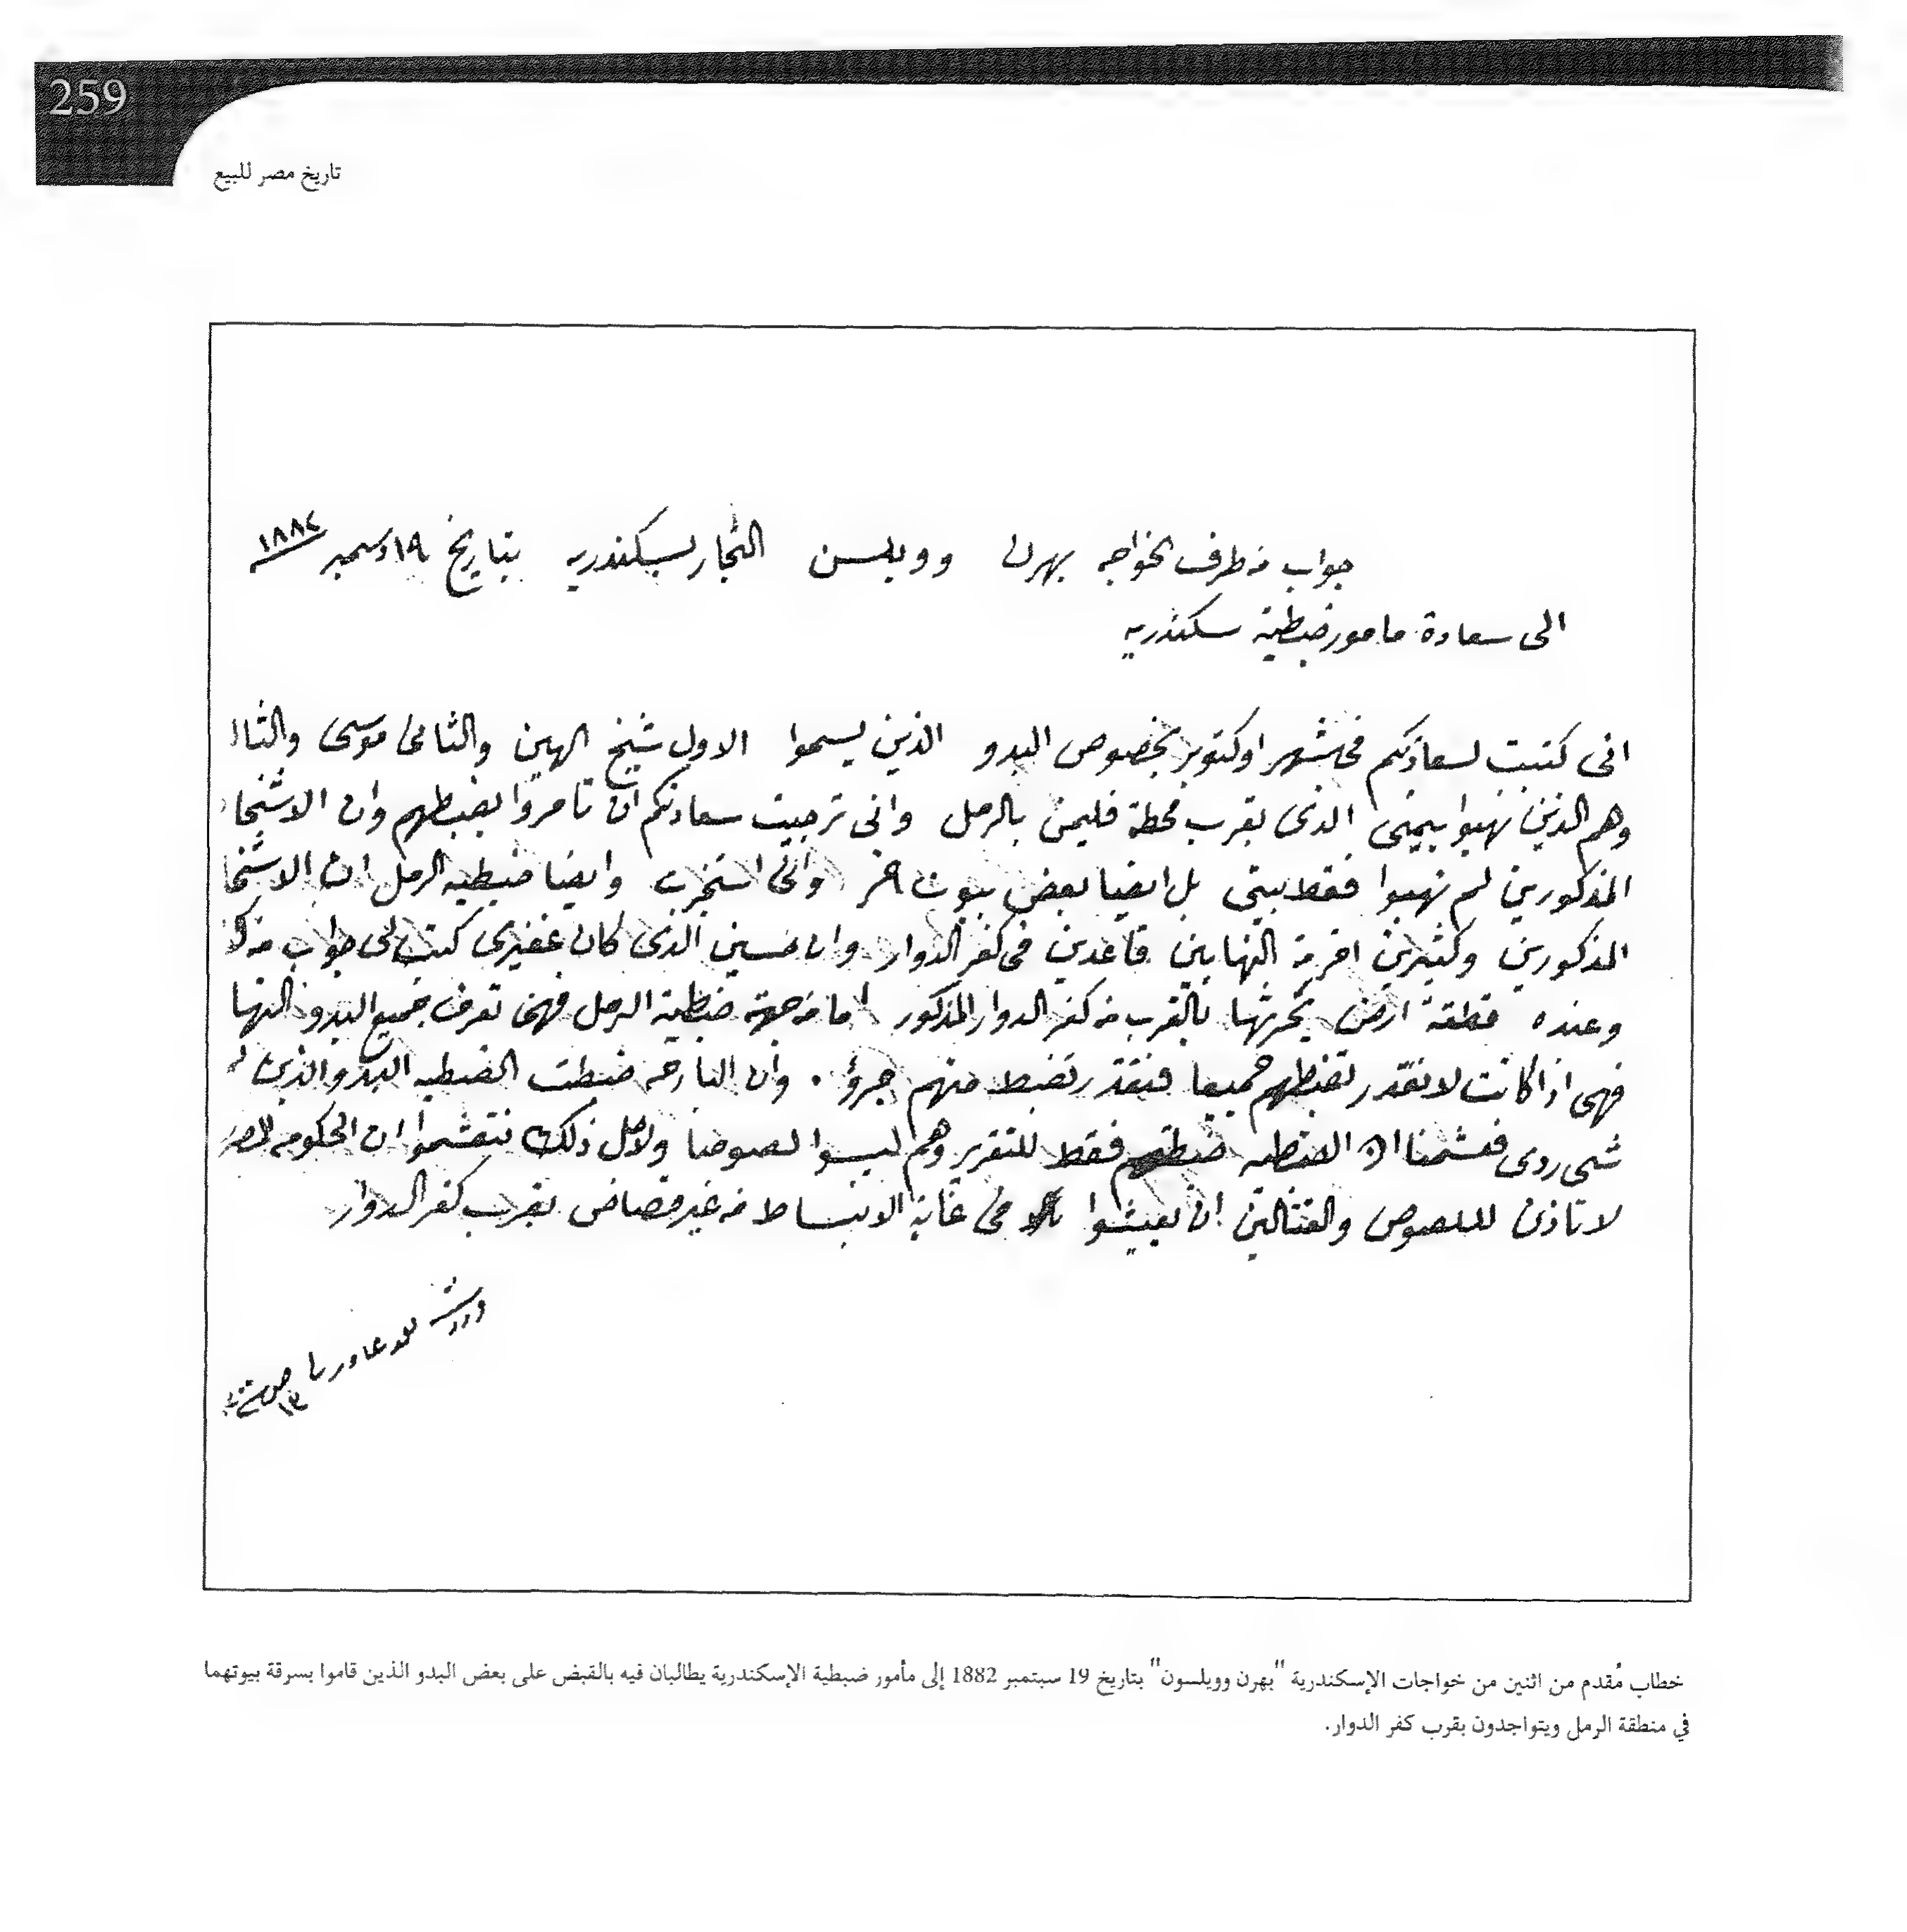 259
تاريخ مصر للبيع
جواب من طرف الخواجه بهرن وويلسن التجار بسكندريه بتاريخ ١٩ دسمبر ١٨٨٢
الى سعادة مامور ضبطية سكندريه
انى كتبت لسعادتكم فى شهر اوكتوبر بخصوص البدو الذين يسموا الاول شيخ الهين والثانى موسى والثا
وهم الذين نهبوا بيتى الذى بقرب محطة فليمن بالرمل وانى ترجيت سعادتكم ان تامروا بضبطهم وان الاشخا
المذكورين لم نهبوا فقط بيتى بل ايضا بعض بيوت اخر وانى استخبرت وايضا ضبطيه الرمل ان الاشخا
المذكورين وكثيرين اخر من النهابين قاعدين فى كفر الدوار وان حسين الذى كان غفيرى كتب لى جواب من
وعنده قطعة ارض يحرثها بالقرب من كفر الدوار المذكور اما من جهة ضبطية الرمل فهى تعرف جميع البدو النها
فهى اذا كانت لا تقدر تضبطهم جميعا فتقدر تضبط منهم جزؤ . وان البارحه ضبطت الضبطيه البدو الذين
شى ردى فعشمنا ان الضبطيه ضبطتهم فقط للتقرير وهم ليسوا لصوصا ولاجل ذلك نتعشموا ان الحكومه المصر
لا تاذن للصوص والقتالين ان يعيشوا فى غاية الانبساط من غير قصاص بقرب كفر الدوار
خطاب مُقدم من اثنين من خواجات الإسكندرية "بهرن وويلسون" بتاريخ 19 سبتمبر 1882 إلى مأمور ضبطية الإسكندرية يطالبان فيه بالقبض على بعض البدو الذين قاموا بسرقة بيوتهما
في منطقة الرمل ويتواجدون بقرب كفر الدوار.